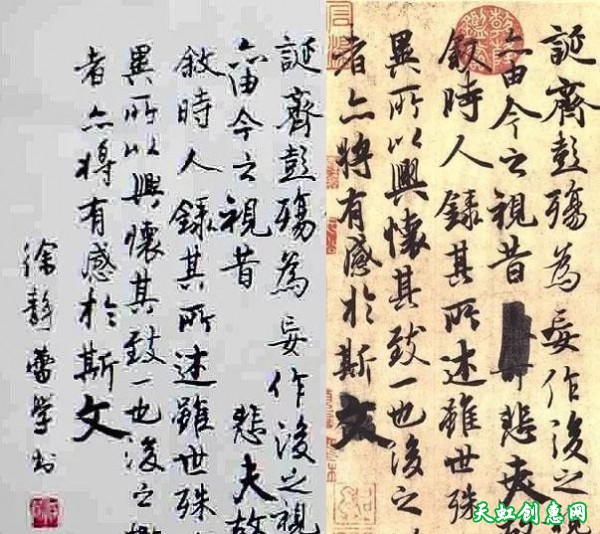 誕齊彭殤為妄作後之視
亦由今之視昔悲夫故
敘時人錄其所述雖世殊
異所以興懷其致一也後之
者亦將有感於斯文
徐靜蕾學書
誕齊彭殤為妄作後之視
亦由今之視昔悲夫故
敘時人錄其所述雖世殊
異所以興懷其致一也後之
者亦將有感於斯文
天虹创惠网